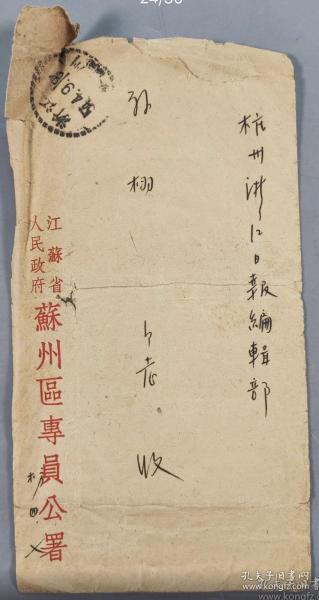 24/30
杭州浙江日報編輯部
孙栩
收
江蘇省
人民政府
蘇州區專員公署
浙江
54.9.18
孔夫子旧书网
www.kongfz.com